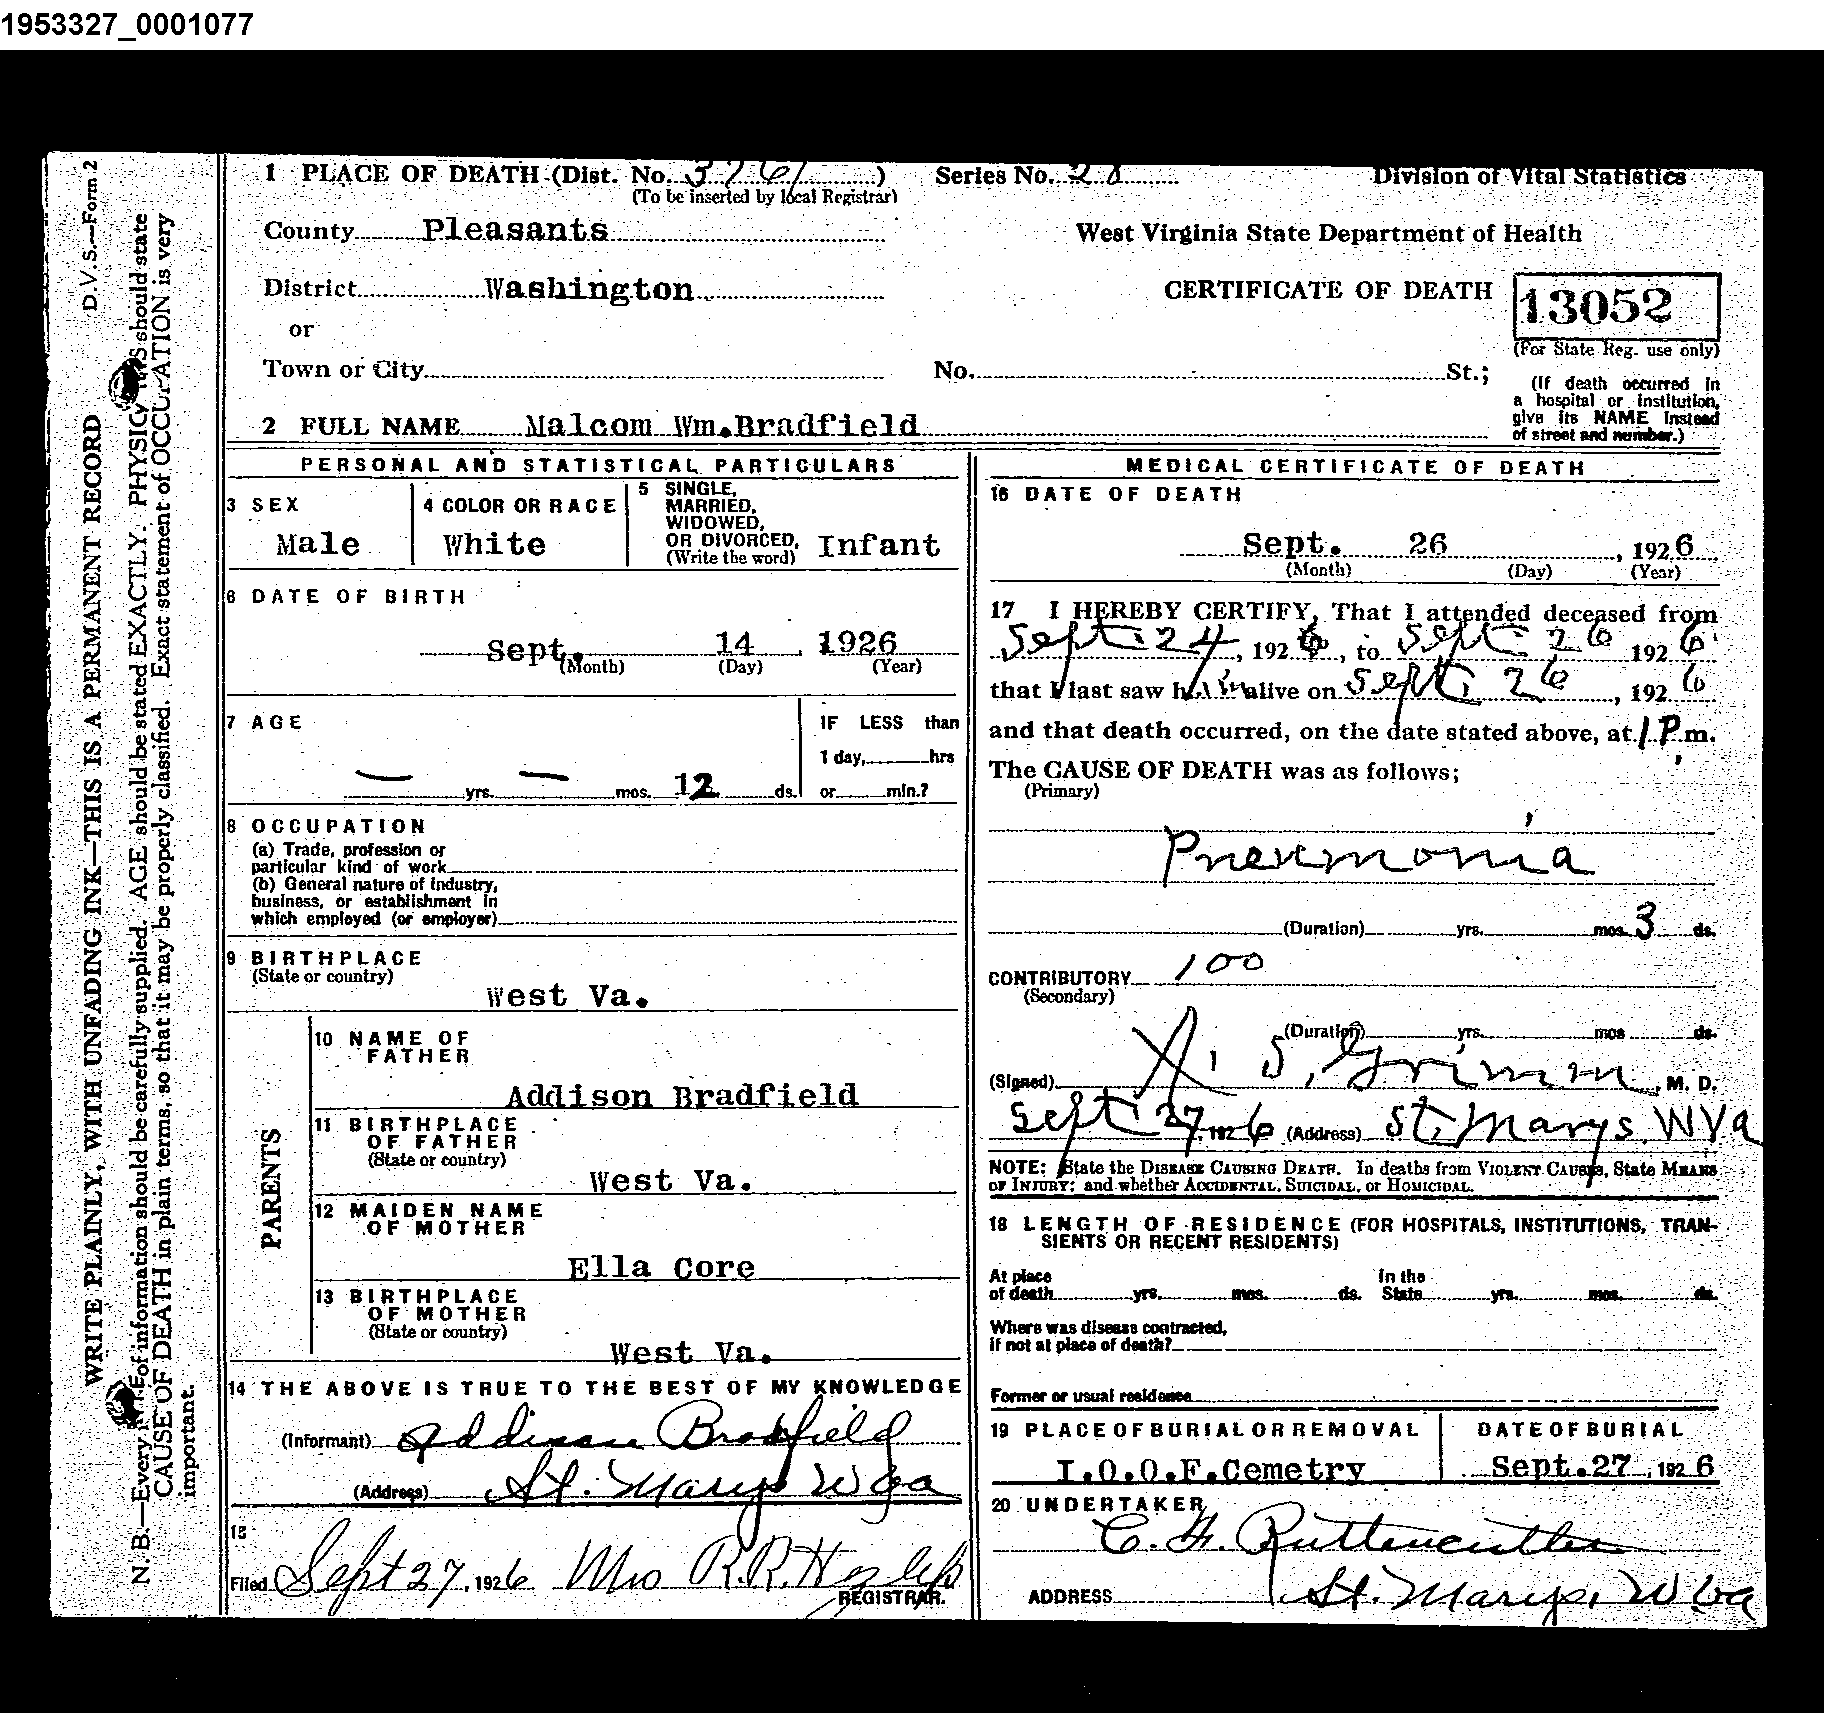 1953327_0001077
D.V.S.—Form 2
WRITE PLAINLY, WITH UNFADING INK—THIS IS A PERMANENT RECORD
N. B.—Every item of information should be carefully supplied. AGE should be stated EXACTLY. PHYSICIANS should state
CAUSE OF DEATH in plain terms, so that it may be properly classified. Exact statement of OCCUPATION is very
important.
1 PLACE OF DEATH (Dist. No. 3761) Series No. 28 Division of Vital Statistics
(To be inserted by local Registrar)
County Pleasants West Virginia State Department of Health
District Washington CERTIFICATE OF DEATH 13052
or
(For State Reg. use only)
Town or City No. St.;
(If death occurred in
a hospital or institution,
give its NAME instead
of street and number.)
2 FULL NAME Malcom Wm.Bradfield
PERSONAL AND STATISTICAL PARTICULARS
3 SEX
Male
4 COLOR OR RACE
White
5 SINGLE,
MARRIED,
WIDOWED,
OR DIVORCED,
(Write the word) Infant
6 DATE OF BIRTH
Sept. 14 1926
(Month) (Day) (Year)
7 AGE
— yrs. — mos. 12 ds.
IF LESS than
1 day, hrs
or min.?
8 OCCUPATION
(a) Trade, profession or
particular kind of work
(b) General nature of industry,
business, or establishment in
which employed (or employer)
9 BIRTHPLACE
(State or country)
West Va.
PARENTS
10 NAME OF
FATHER
Addison Bradfield
11 BIRTHPLACE
OF FATHER
(State or country)
West Va.
12 MAIDEN NAME
OF MOTHER
Ella Core
13 BIRTHPLACE
OF MOTHER
(State or country)
West Va.
14 THE ABOVE IS TRUE TO THE BEST OF MY KNOWLEDGE
(Informant) Addison Bradfield
(Address) St. Marys W Va
15
Filed Sept 27, 1926 Mrs R.R. 
REGISTRAR.
MEDICAL CERTIFICATE OF DEATH
16 DATE OF DEATH
Sept. 26, 1926
(Month) (Day) (Year)
17 I HEREBY CERTIFY, That I attended deceased from
Sept. 24, 1926, to Sept. 26 1926
that I last saw him alive on Sept. 26, 1926
and that death occurred, on the date stated above, at 1 P.m.
The CAUSE OF DEATH was as follows;
(Primary)
Pneumonia
(Duration) yrs. mos. 3 ds.
CONTRIBUTORY 100
(Secondary)
(Duration) yrs. mos ds.
(Signed) S. Grimm, M. D.
Sept. 27, 1926 (Address) St. Marys WVa
NOTE: State the DISEASE CAUSING DEATH. In deaths from VIOLENT CAUSES, State MEANS
OF INJURY; and whether ACCIDENTAL, SUICIDAL, or HOMICIDAL.
18 LENGTH OF RESIDENCE (FOR HOSPITALS, INSTITUTIONS, TRAN-
SIENTS OR RECENT RESIDENTS)
At place In the
of death yrs. mos. ds. State yrs. mos. ds.
Where was disease contracted,
if not at place of death?
Former or usual residence
19 PLACE OF BURIAL OR REMOVAL
I.O.O.F.Cemetry
DATE OF BURIAL
Sept.27, 1926
20 UNDERTAKER
C. H.
ADDRESS St. Marys, W Va